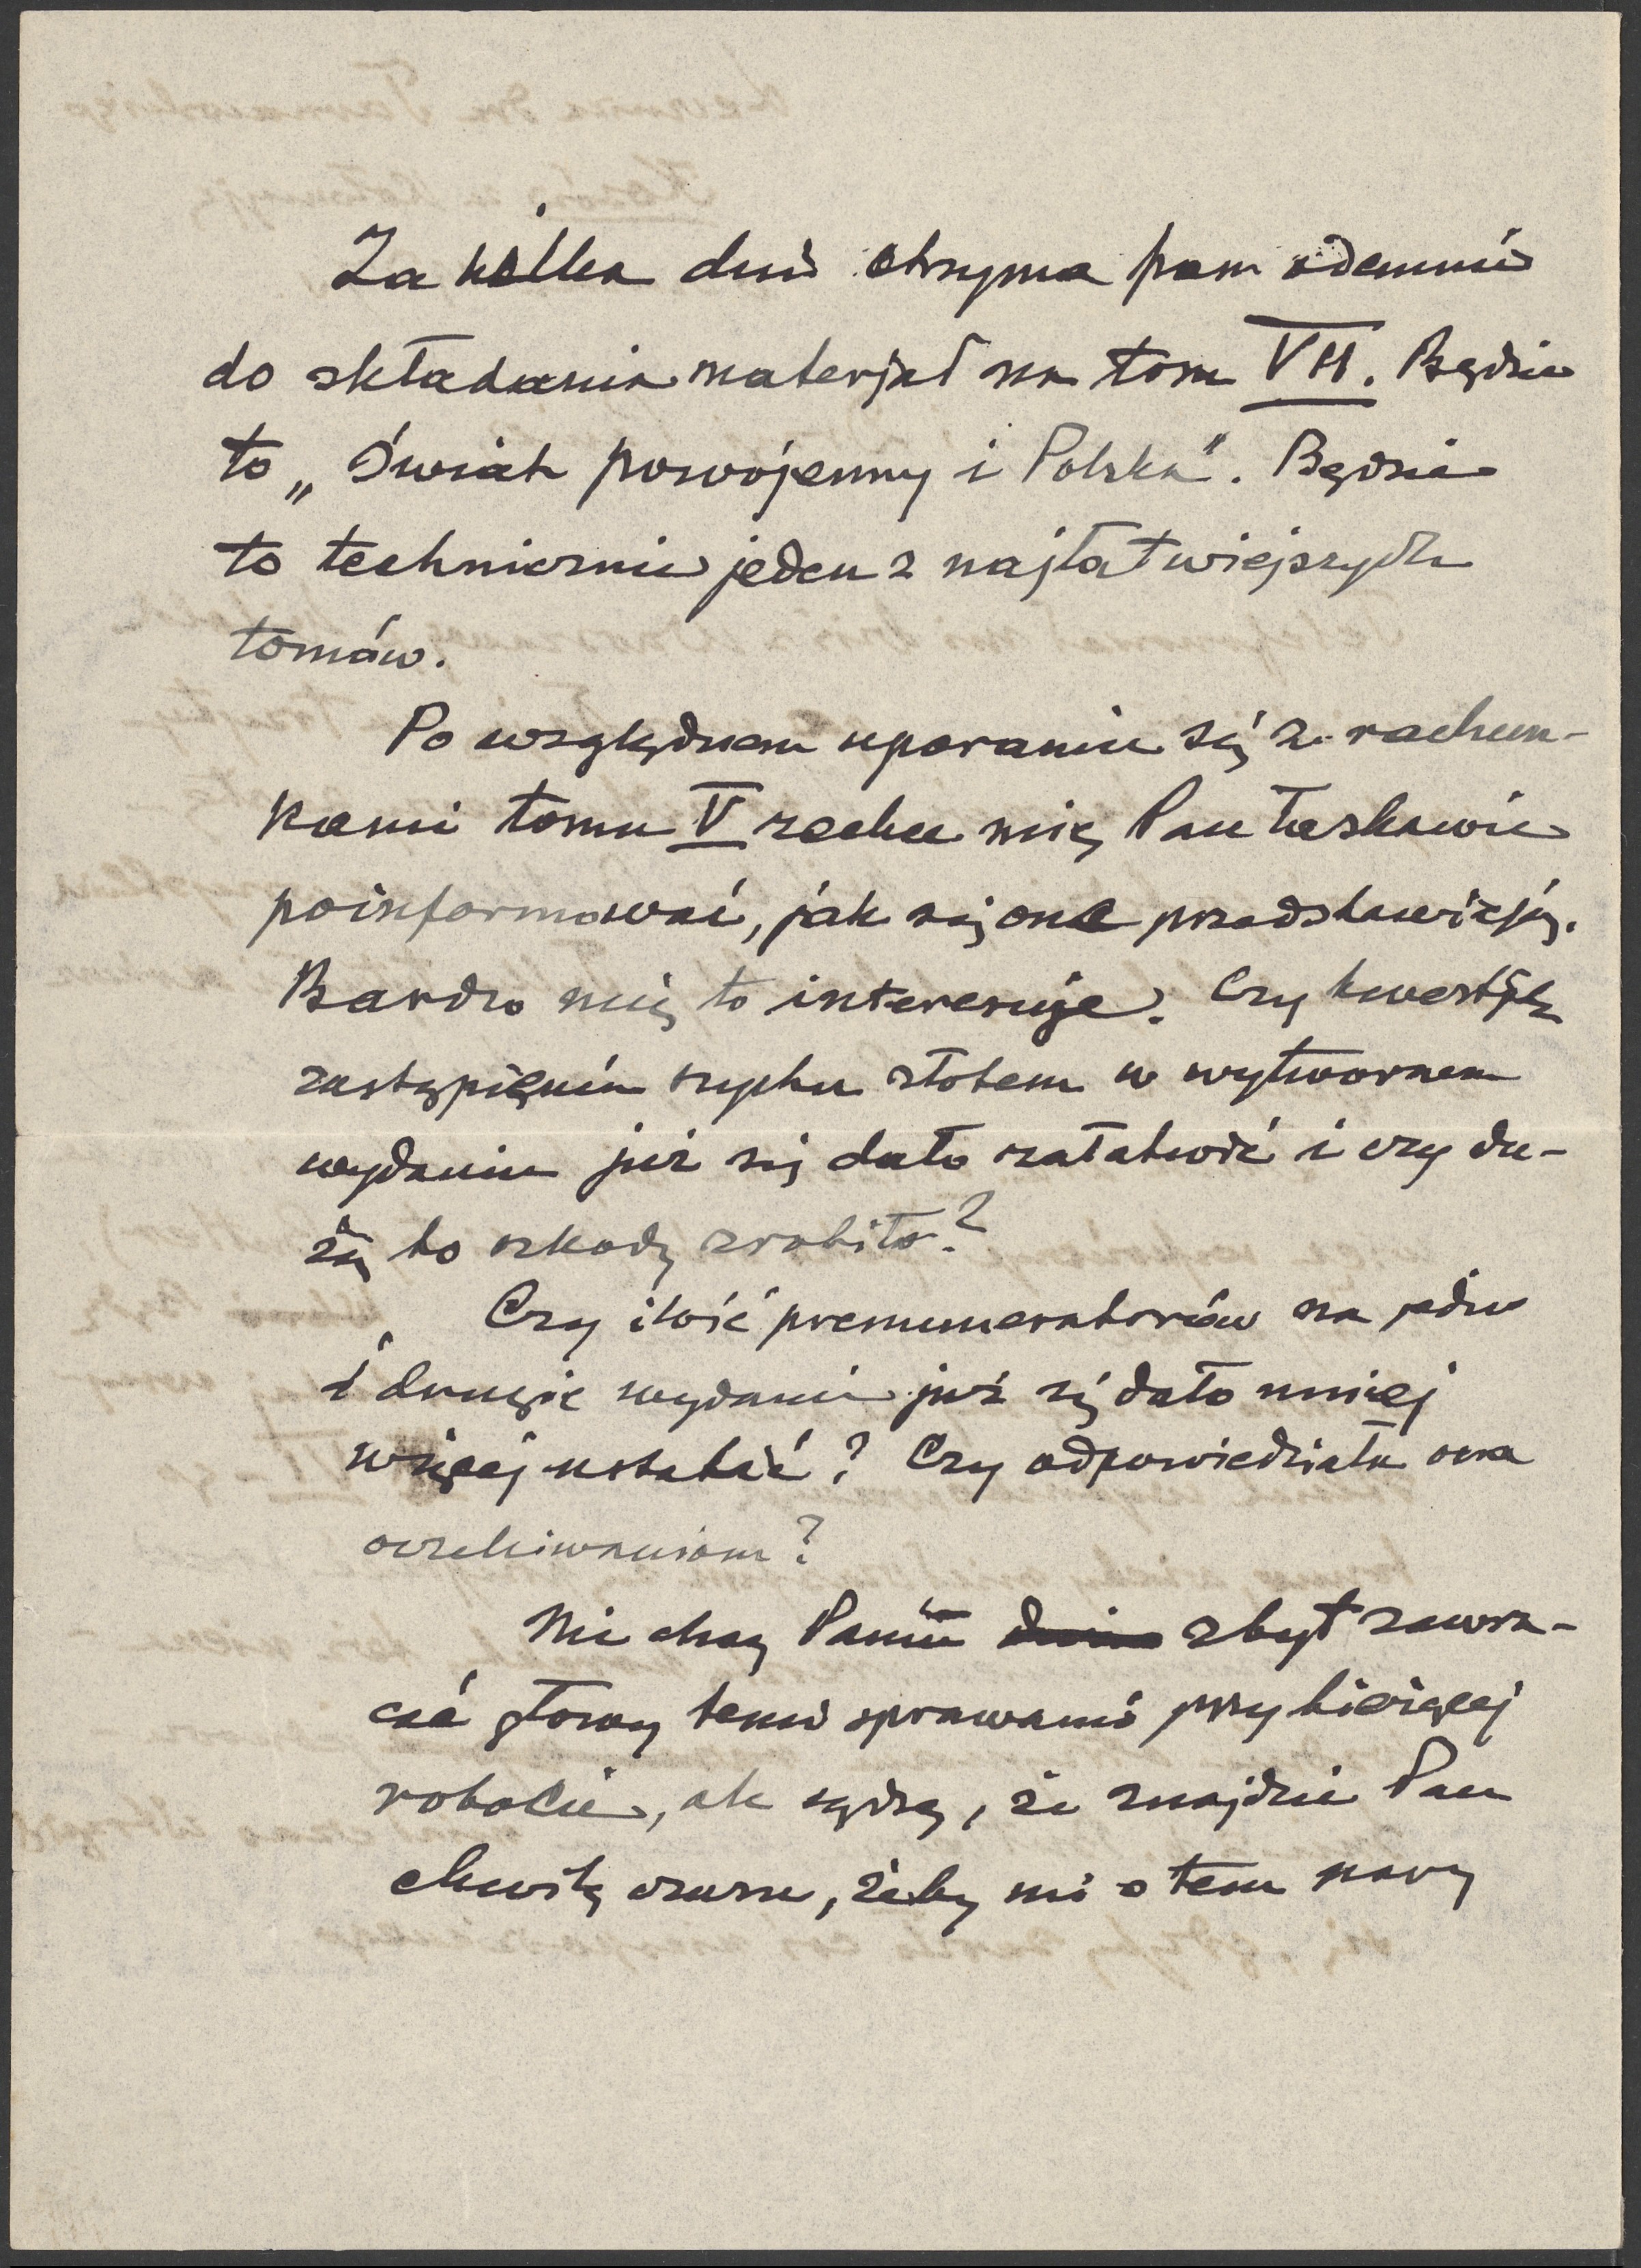 Za kilka dni otrzyma pan odemnie
do składania materjał na tom VII. Będzie
to „Świat powojenny i Polska". Będzie
to technicznie jeden z najłatwiejszych
tomów.
Po względnem uporaniu się z rachun-
kami tomu V zechce mię Pan łaskawie
poinformować, jak się one przedstawiają.
Bardzo mię to interesuje. Czy kwestję
zastąpienia szychu złotem w wytwornem
wydaniu już się dało załatwić i czy du-
żą to szkodę zrobiło?
Czy ilość prenumeratorów na jedno
i drugie wydanie już się dało mniej
więcej ustalić? Czy odpowiedziała ona
oczekiwaniom?
Nie chcę Panu zbyt zawra-
cać głowy temi sprawami przy bieżącej
robocie, ale sądzę, że znajdzie Pan
chwilę czasu, żeby mi o tem parę